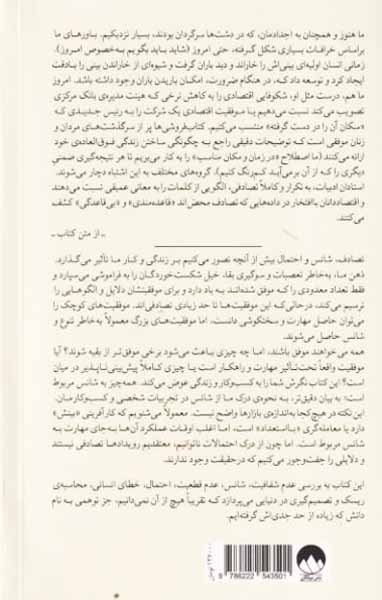 ما هنوز و همچنان به اجدادمان، که در دشت‌ها سرگردان بودند، بسیار نزدیکیم. باورهای ما
براساس خرافات بسیاری شکل گرفته، حتی امروز (شاید باید بگویم به‌خصوص امروز).
زمانی انسان اولیه‌ای بینی‌اش را خاراند و دید باران گرفت و شیوه‌ای از خاراندن بینی را با دقت
ایجاد کرد و توسعه داد که، در هنگام ضرورت، امکان باریدن باران وجود داشته باشد. امروز
ما هم، درست مثل او، شکوفایی اقتصادی را به کاهش نرخی که هیئت مدیره‌ی بانک مرکزی
تصویب می‌کند نسبت می‌دهیم یا موفقیت اقتصادی یک شرکت را به رئیس جدیدی که
«سکان آن را در دست گرفته» منتسب می‌کنیم. کتاب‌فروشی‌ها پر از سرگذشت‌های مردان و
زنان موفقی است که توضیحات دقیقی راجع به چگونگی ساختن زندگی فوق‌العاده‌ی خود
ارائه می‌کنند (ما اصطلاح «در زمان و مکان مناسب» را به کار می‌بریم تا هر نتیجه‌گیری ضمنی
دیگری را که از آن برمی‌آید کم‌رنگ کنیم). گروه‌های مختلف به این اشتباه دچار می‌شوند.
استادان ادبیات، به تکرار و کاملاً تصادفی، الگویی از کلمات را به معانی عمیقی نسبت می‌دهند
و اقتصاددانان با افتخار در داده‌هایی که تصادف محض‌اند «قاعده‌مندی» و «بی‌قاعدگی» کشف
می‌کنند.
ـ از متن کتاب ـ
تصادف، شانس و احتمال بیش از آنچه تصور می‌کنیم بر زندگی و کار ما تأثیر می‌گذارد.
ذهن ما، به‌خاطر تعصبات و سوگیری بقا، خیل شکست‌خوردگان را به فراموشی می‌سپارد و
فقط تعداد معدودی را که موفق شده‌اند به یاد دارد و برای موفقیتشان دلایلی و الگوهایی را
ترسیم می‌کند، درحالی‌که این موفقیت‌ها تا حد زیادی تصادفی‌اند. موفقیت‌های کوچک را
می‌توان حاصل مهارت و سختکوشی دانست، اما موفقیت‌های بزرگ معمولاً به‌خاطر تنوع و
شانس حاصل می‌شوند.
همه می‌خواهند موفق باشند، اما چه چیزی باعث می‌شود برخی موفق‌تر از بقیه شوند؟ آیا
موفقیت واقعاً تحت‌تأثیر مهارت و راهکار است یا چیزی کاملاً پیش‌بینی‌ناپذیر در میان
است؟ این کتاب نگرش شما را به کسب‌وکار و زندگی عوض می‌کند. همه‌چیز به شانس مربوط
است؛ به بیان دقیق‌تر، به نحوه‌ی درک ما از شانس در تجربیات شخصی و کسب‌وکارمان.
این نکته در هیچ‌کجا به‌اندازه‌ی بازارها واضح نیست. معمولاً می‌شنویم که کارآفرینی «بینش»
دارد یا معامله‌گری «بااستعداد» است، اما اغلب اوقات عملکرد آن‌ها به‌جای مهارت به
شانس مربوط است. اما چون از درک احتمالات ناتوانیم، معتقدیم رویدادها تصادفی نیستند
و دلایلی را جست‌وجو می‌کنیم که درحقیقت وجود ندارند.
این کتاب به بررسی عدم شفافیت، شانس، عدم قطعیت، احتمال، خطای انسانی، محاسبه‌ی
ریسک و تصمیم‌گیری در دنیایی می‌پردازد که تقریباً هیچ از آن نمی‌دانیم، جز توهمی به نام
دانش که زیاده از حد جدی‌اش گرفته‌ایم.
9 786222 543501